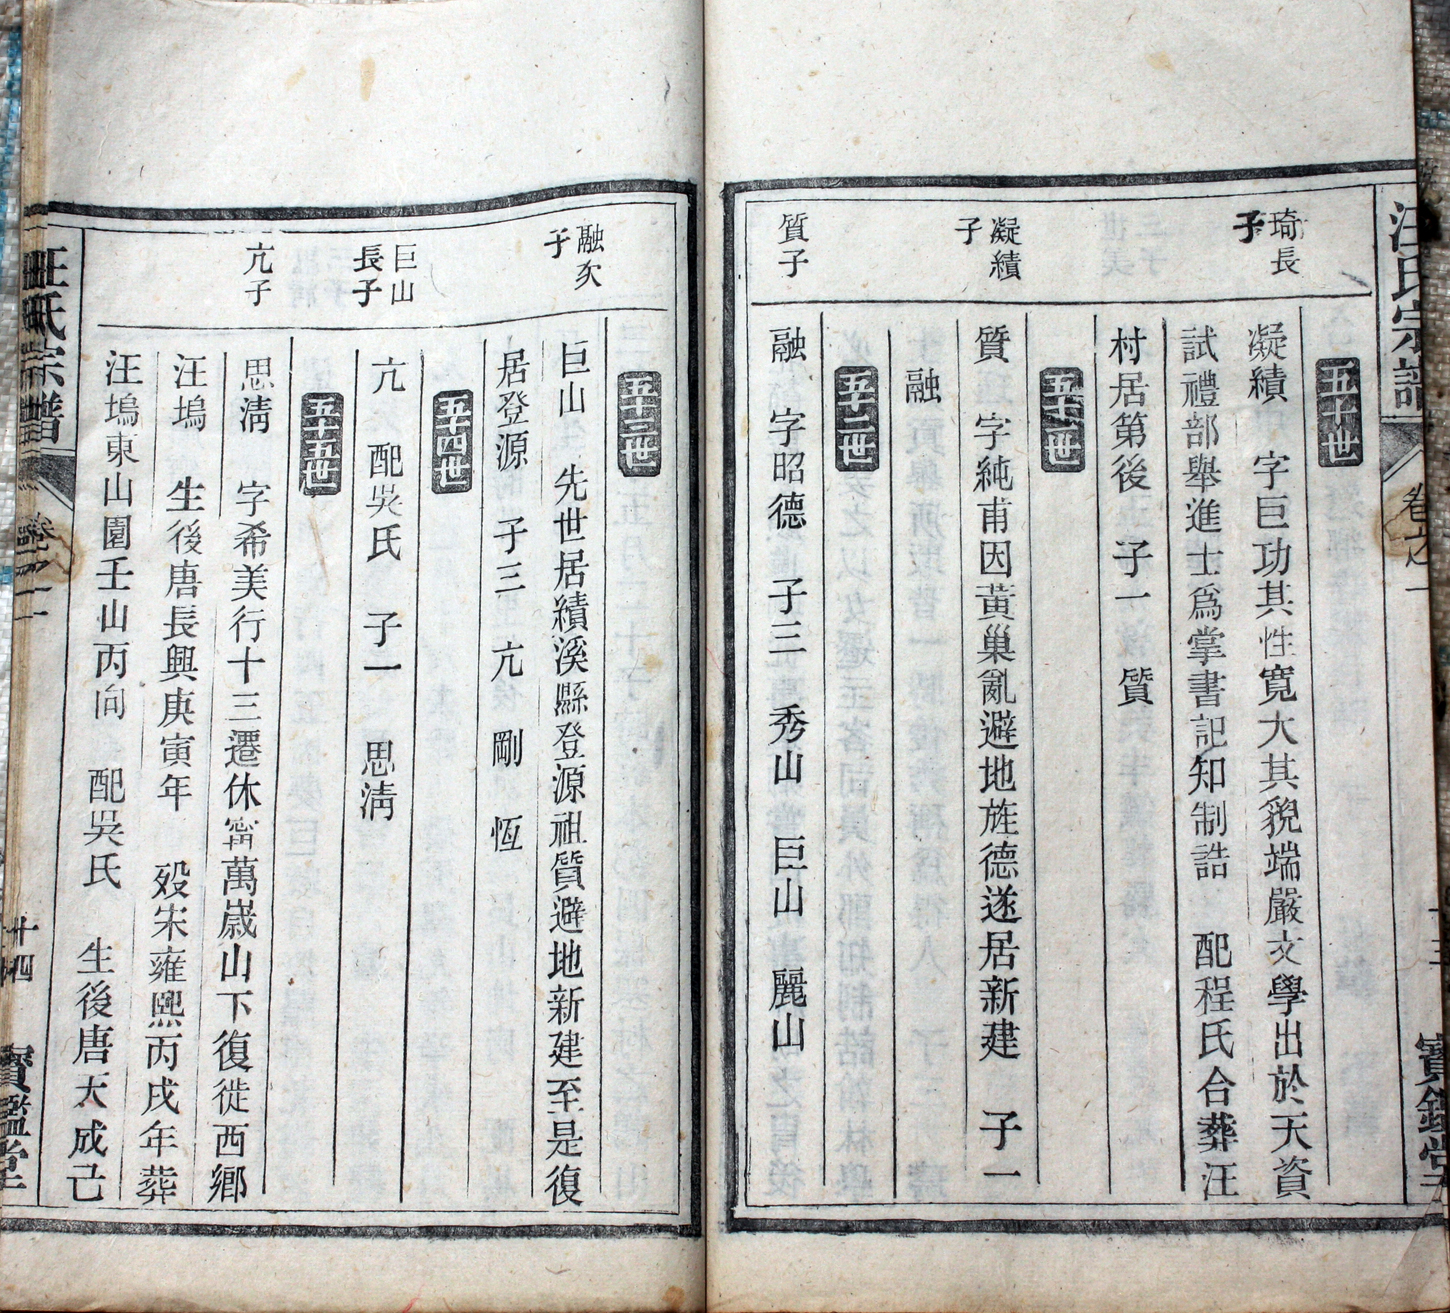 汪氏宗譜
卷之一
十三
寶鑑堂
琦長
子
五十世
凝績 字巨功其性寬大其貌端嚴文學出於天資
試禮部舉進士爲掌書記知制誥 配程氏合葬汪
村居第後 子一 質
凝績
子
五十一世
質 字純甫因黃巢亂避地旌德遂居新建 子一
融
質子
五十二世
融 字昭德 子三 秀山 巨山 麗山
融次
子
五十三世
巨山 先世居績溪縣登源祖質避地新建至是復
居登源 子三 亢 剛 恆
巨山
長子
五十四世
亢 配吳氏 子一 思淸
亢子
五十五世
思淸 字希美行十三遷休甯萬歲山下復徙西鄉
汪塢 生後唐長興庚寅年 歿宋雍熙丙戌年葬
汪塢東山園壬山丙向 配吳氏 生後唐天成己
汪氏宗譜
卷之一
十四
寶鑑堂